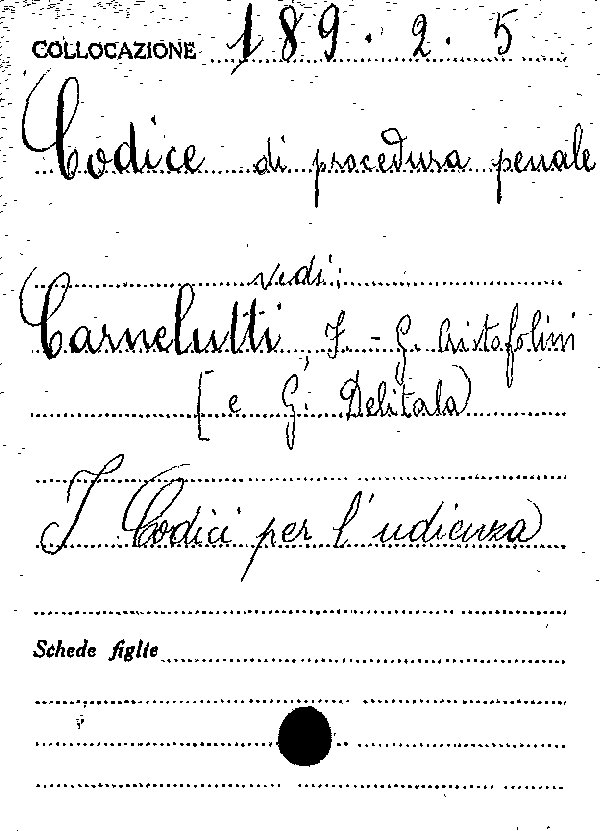 COLLOCAZIONE 189.2.5
Codice di procedura penale
vedi:
Carnelutti, F. - G. Cristofolini
[e G. Delitala]
I Codici per l'udienza
Schede figlie